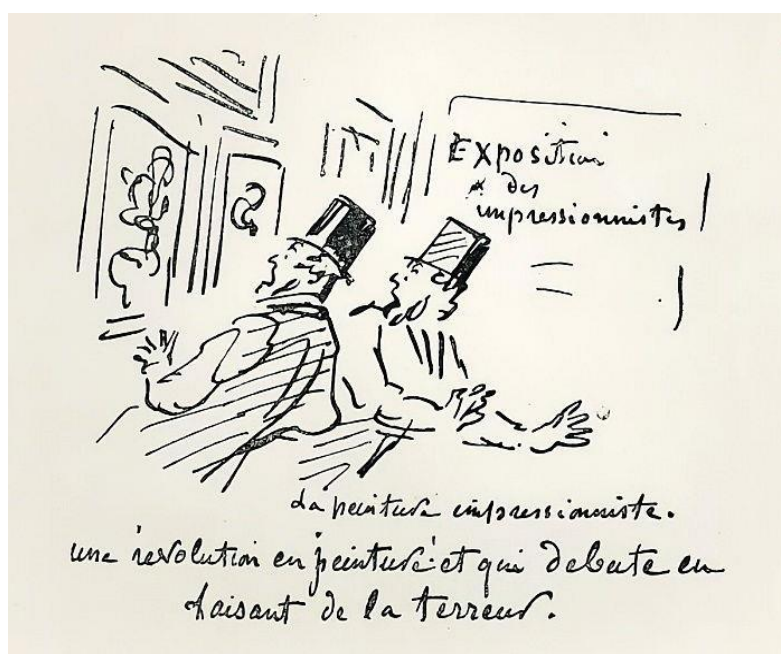 Exposition
des
impressionnistes
La peinture impressionniste.
une révolution en peinture! et qui débute en
faisant de la terreur.